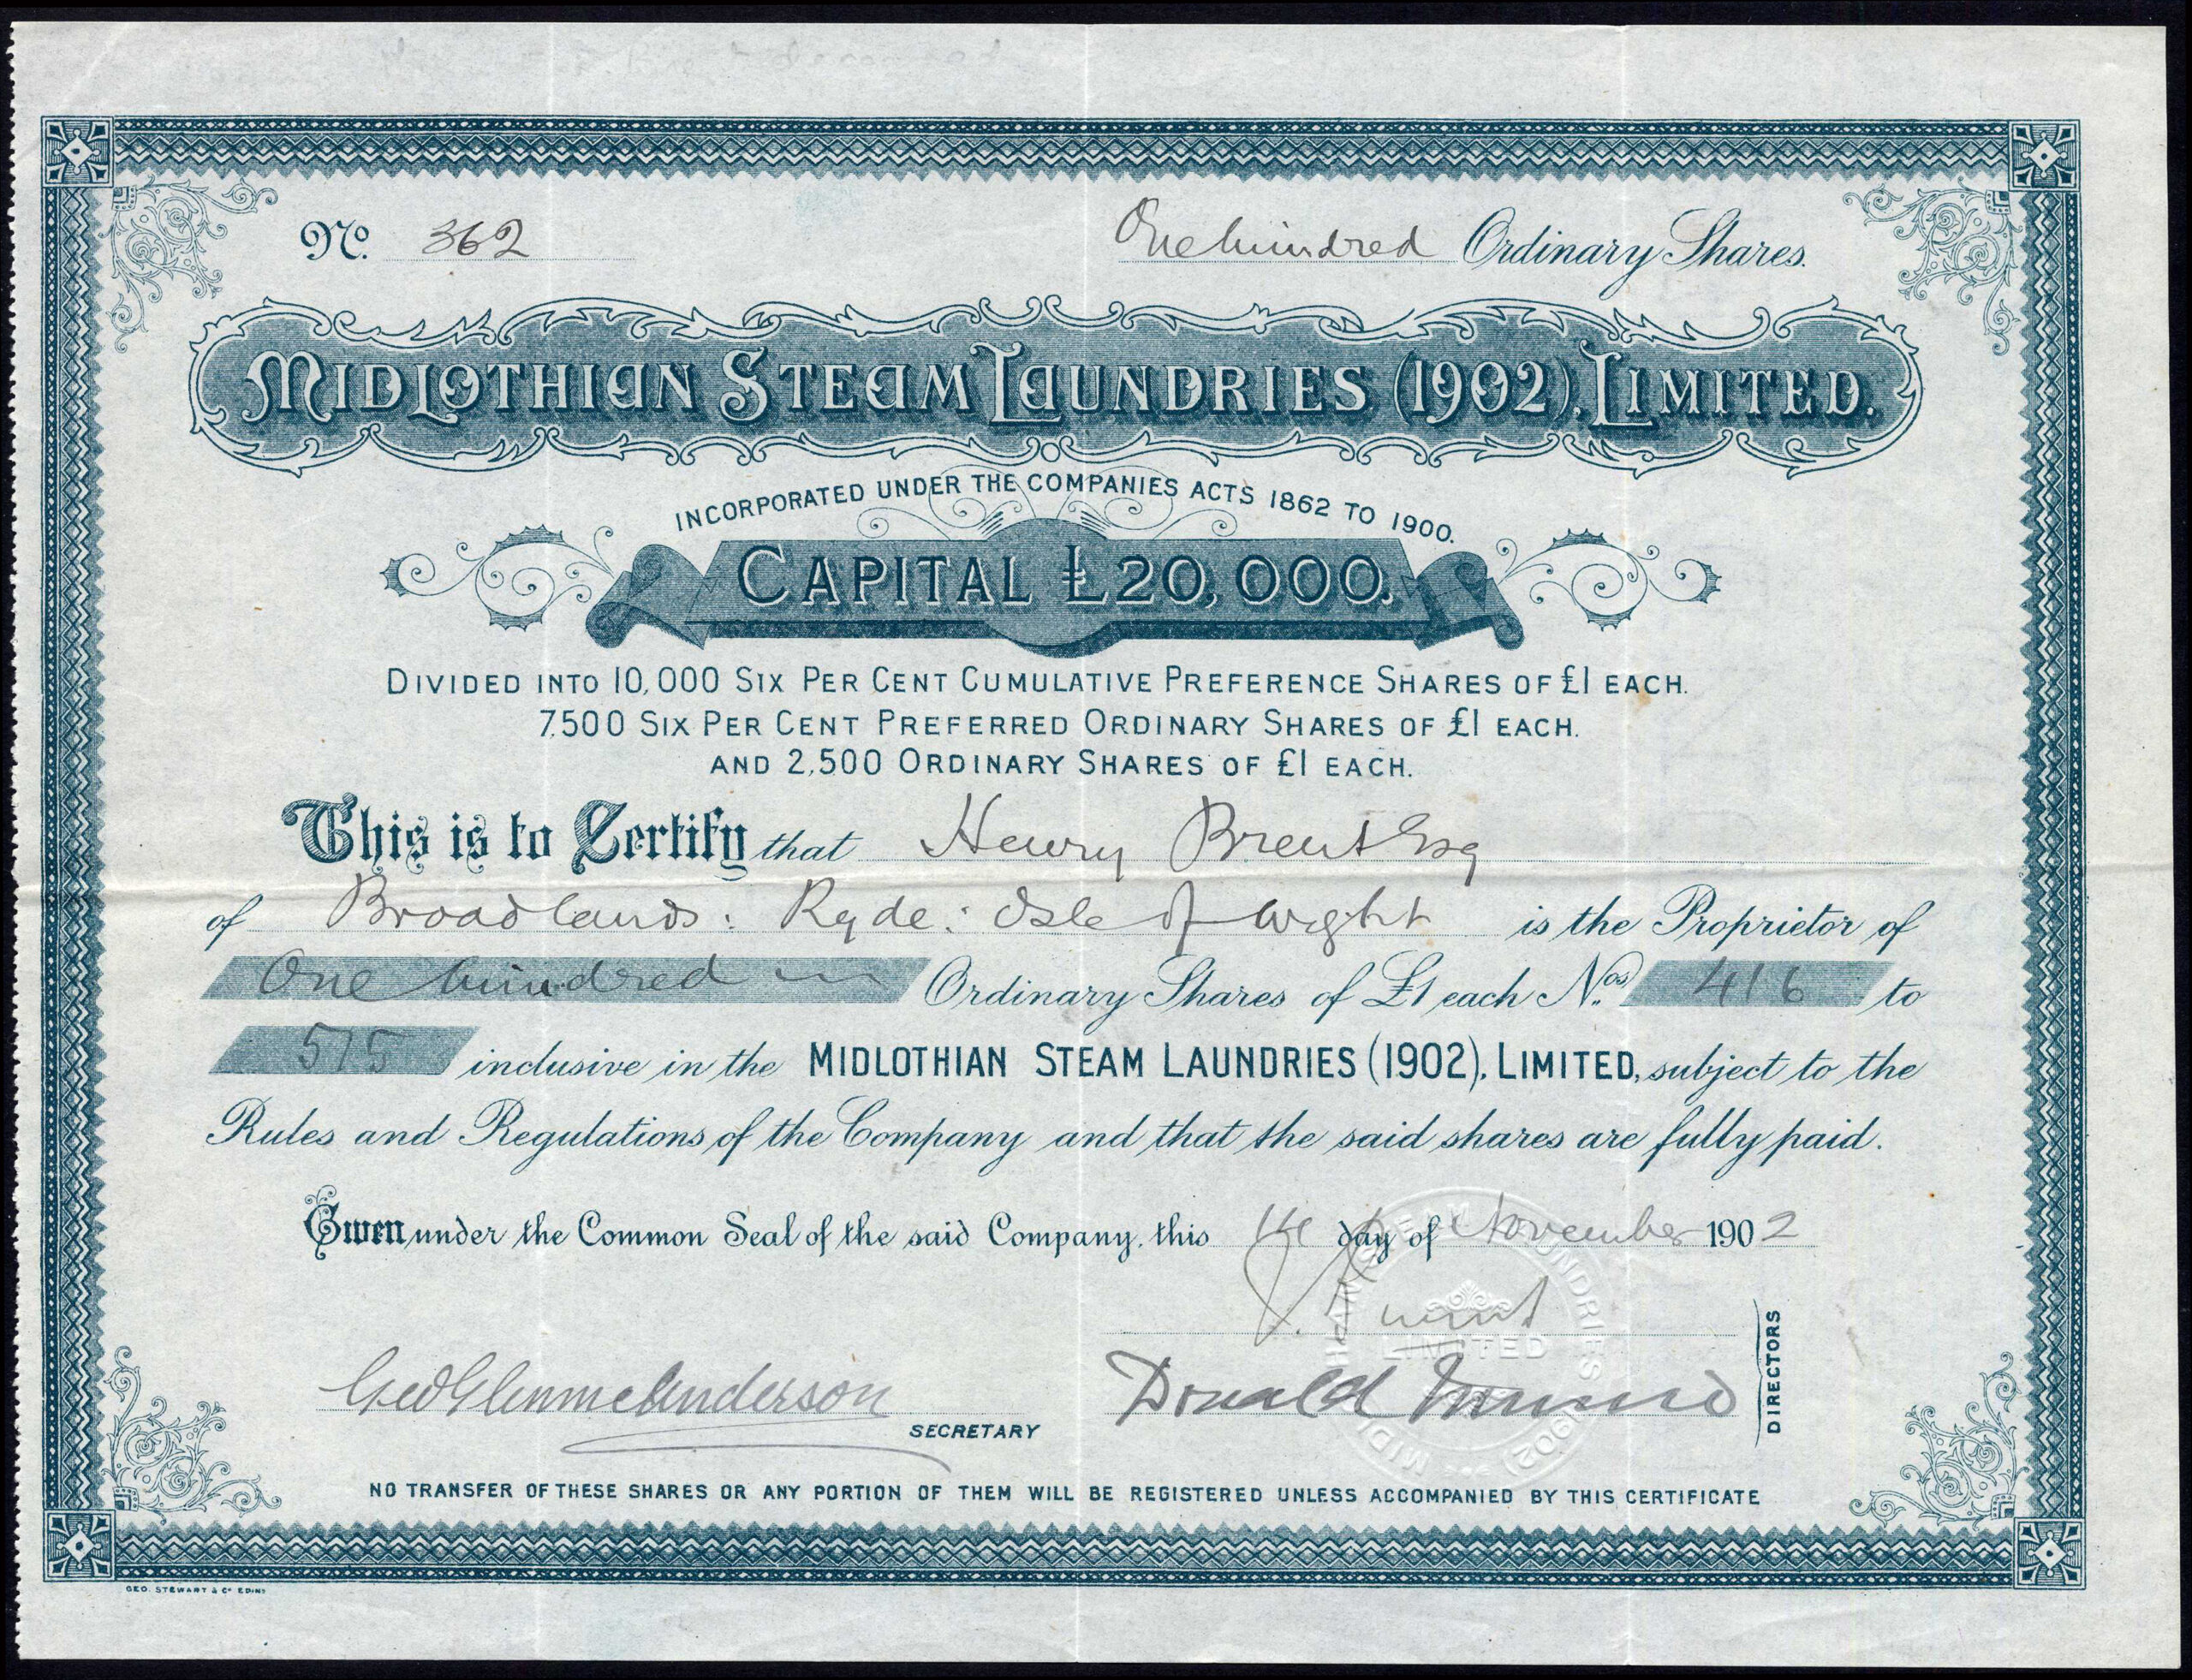 No. 362 One hundred Ordinary Shares.
MIDLOTHIAN STEAM LAUNDRIES (1902), LIMITED.
INCORPORATED UNDER THE COMPANIES ACTS 1862 TO 1900.
CAPITAL £20,000.
DIVIDED INTO 10,000 SIX PER CENT CUMULATIVE PREFERENCE SHARES OF £1 EACH.
7,500 SIX PER CENT PREFERRED ORDINARY SHARES OF £1 EACH.
AND 2,500 ORDINARY SHARES OF £1 EACH.
This is to Certify that Henry Brent Esq
of Broadlands: Ryde: Isle of Wight is the Proprietor of
One hundred Ordinary Shares of £1 each Nos. 416 to
515 inclusive in the MIDLOTHIAN STEAM LAUNDRIES (1902), LIMITED, subject to the
Rules and Regulations of the Company and that the said shares are fully paid.
Given under the Common Seal of the said Company, this day of November 1902
LIMITED
DIRECTORS
Donald
SECRETARY
MIDLOTHIAN STEAM LAUNDRIES (1902)
NO TRANSFER OF THESE SHARES OR ANY PORTION OF THEM WILL BE REGISTERED UNLESS ACCOMPANIED BY THIS CERTIFICATE
GEO. STEWART & Co EDINR